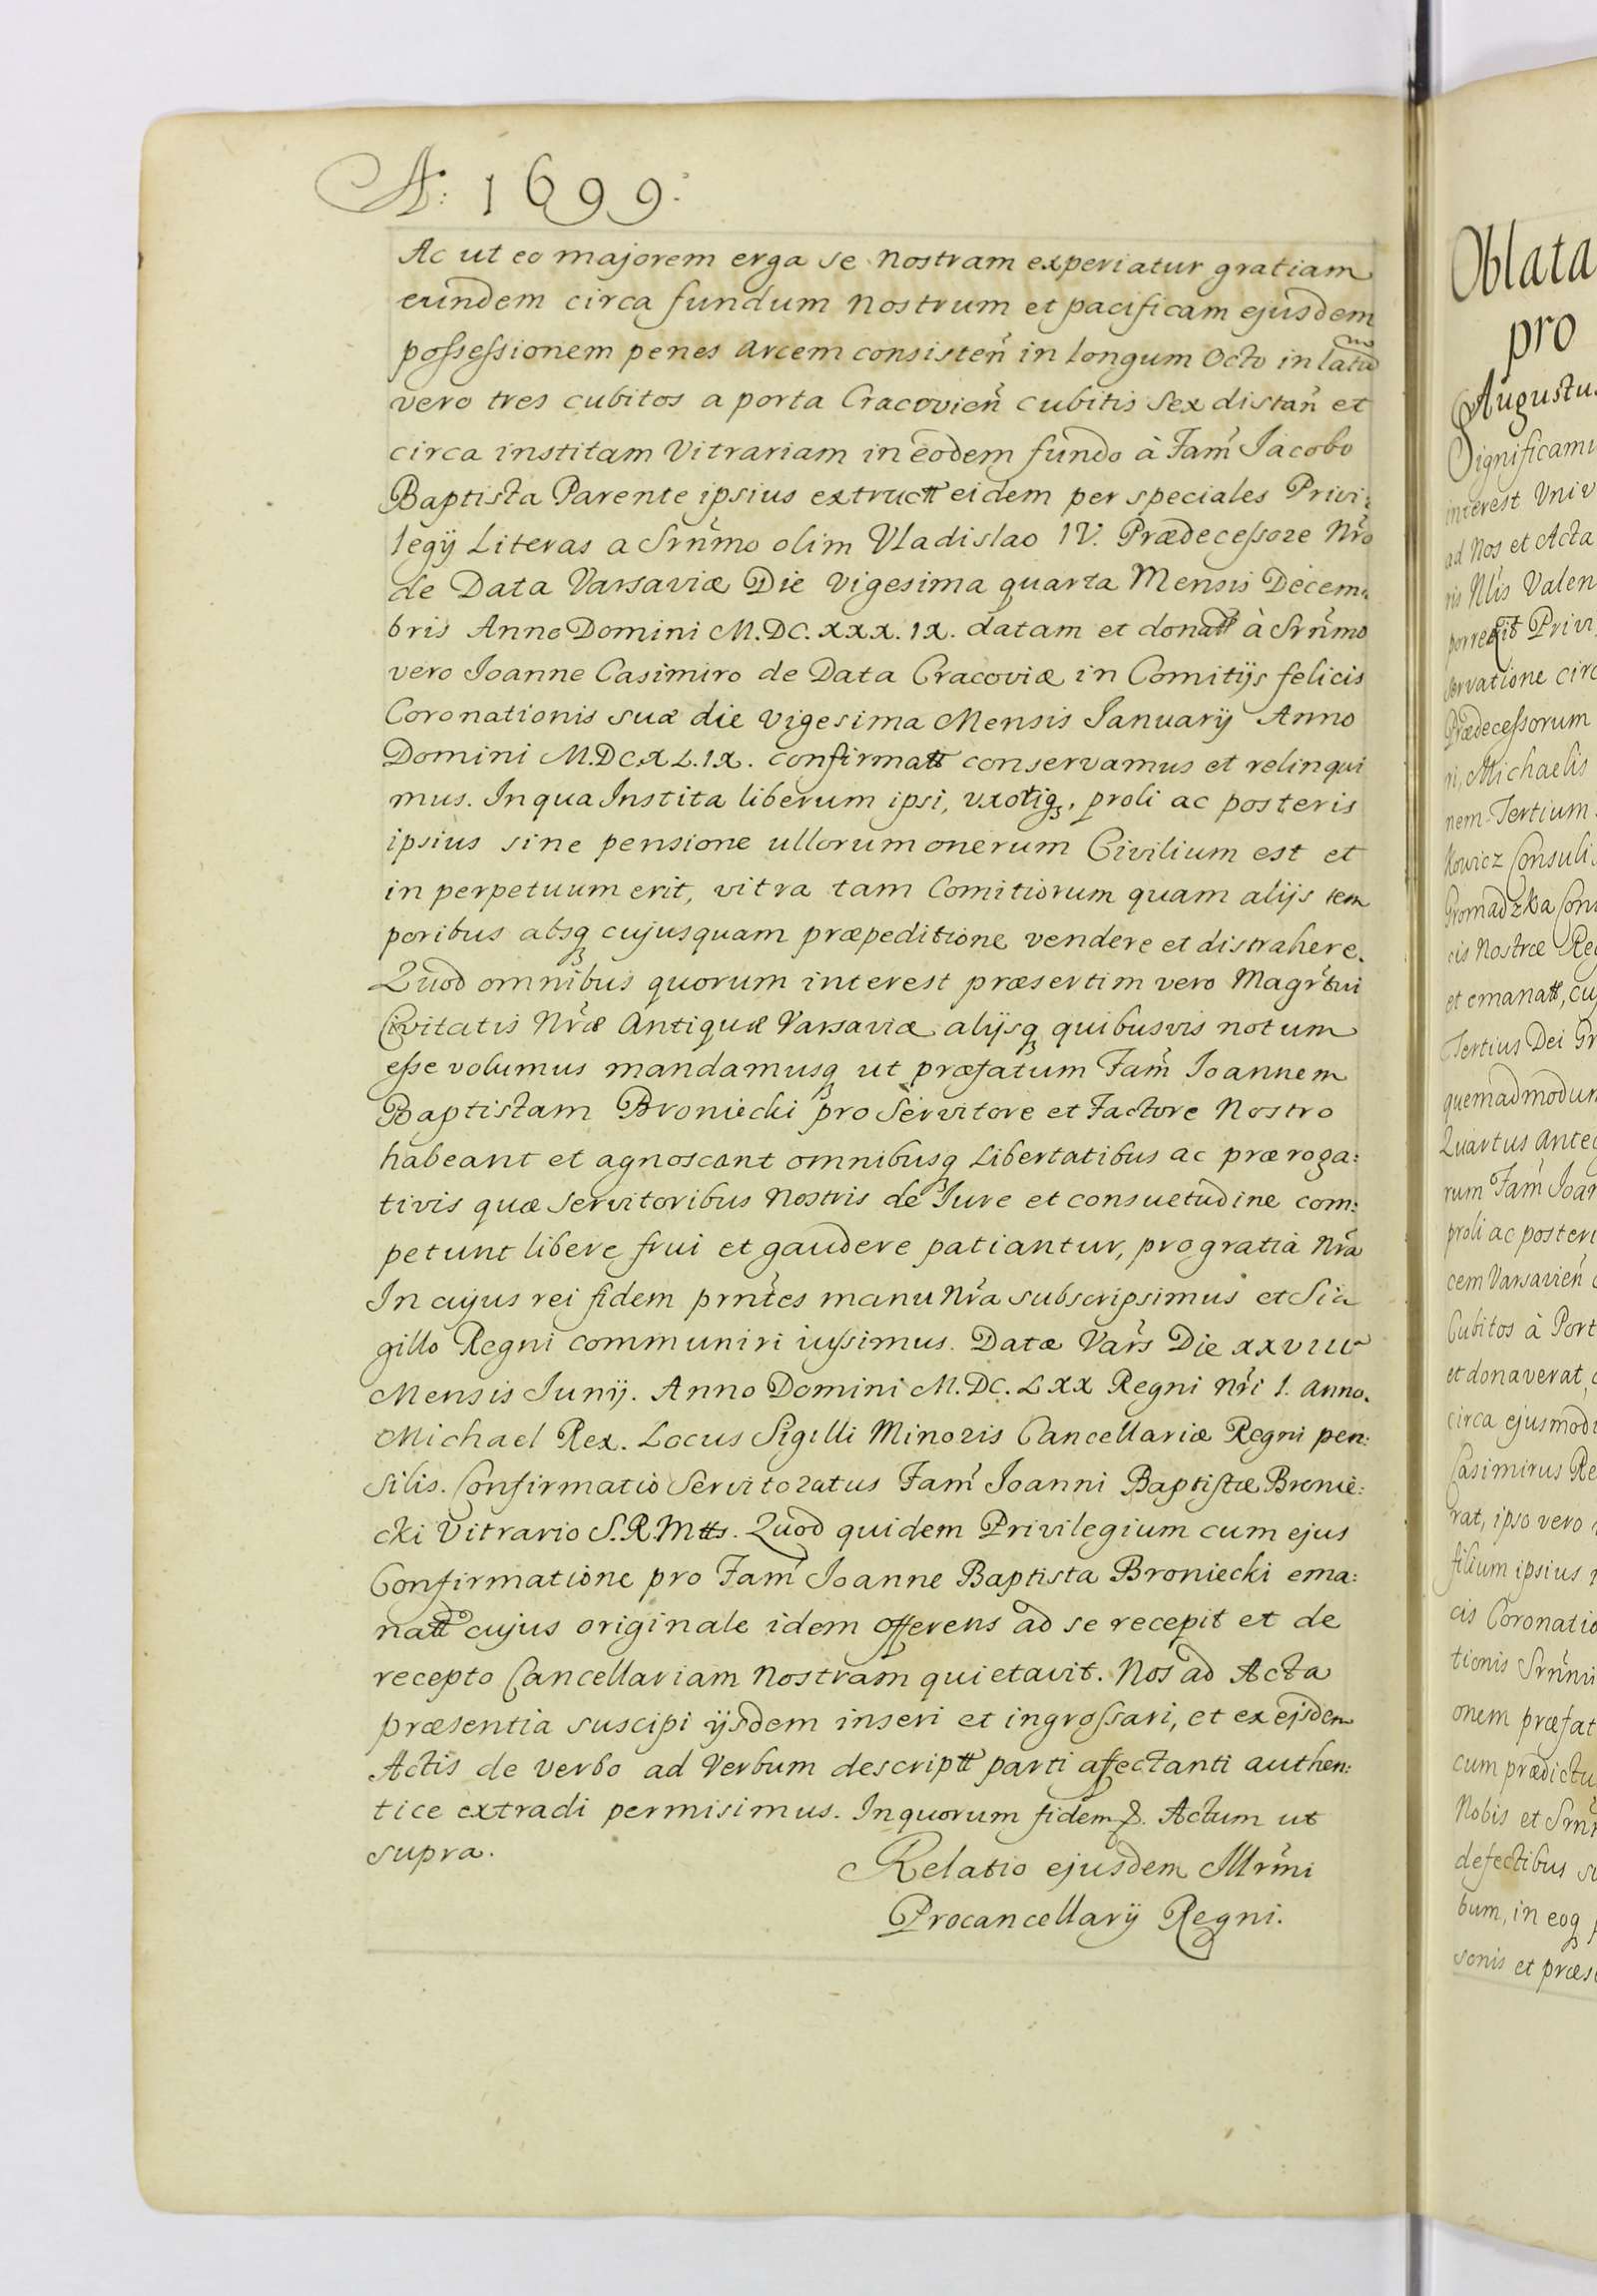 A: 1699:
Ac ut eo majorem erga se Nostram experiatur gratiam
eundem circa fundum Nostrum et pacificam ejusdem
possessionem penes Arcem consisteñ in longum Octo in latũ
vero tres cubitos a porta Cracovieñ cubitis Sex distañ et
circa institam Vitrariam in eodem fundo à Fam̃ Jacobo
Baptista Parente ipsius extructt eidem per speciales Privi:
legij Literas a Srñmo olim Vladislao IV. Prædecessore Nr̃o
de Data Varsaviæ Die Vigesima quarta Mensis Decem:
bris Anno Domini M.DC.XXX.IX. datam et donatt à Srñmo
vero Joanne Casimiro de Data Cracoviæ in Comitijs felicis
Coronationis suæ die Vigesima Mensis Januarij Anno
Domini M.DC.XL.IX. confirmatt conservamus et relinqui
mus. In qua Instita liberum ipsi, uxoriq, proli ac posteris
ipsius sine pensione ullorum onerum Civilium est et
in perpetuum erit, vitra tam Comitiorum quam alijs tem
poribus absq cujusquam præpeditione vendere et distrahere.
Quod omnibus quorum interest præsertim vero Magrt̃ui
Civitatis Nr̃æ Antiquæ Varsaviæ alijsq quibusvis notum
esse volumus mandamusq ut præfatum Fam̃ Joannem
Baptistam Broniecki pro Servitore et Factore Nostro
habeant et agnoscant omnibusq Libertatibus ac præroga:
tivis quæ Servitoribus Nostris de Jure et consuetudine com:
petunt libere frui et gaudere patiantur, pro gratia Nr̃a
In cujus rei fidem prñtes manu Nr̃a subscripsimus et Si
gillo Regni communiri iussimus. Datæ Var̃s Die XXVIII
Mensis Junij. Anno Domini M.DC.LXX Regni Nr̃i I. Anno.
Michael Rex. Locus Sigilli Minoris Cancellariæ Regni pen:
silis. Confirmatio Servitoratus Fam̃ Joanni Baptistæ Bronie:
cki Vitrario S.R.Mtts. Quod quidem Privilegium cum ejus
Confirmatione pro Fam̃ Joanne Baptista Broniecki ema:
natt cujus originale idem Offerens ad se recepit et de
recepto Cancellariam Nostram quietavit. Nos ad Acta
præsentia suscipi ijsdem inseri et ingrossari, et ex eisdem
Actis de verbo ad Verbum descriptt parti affectanti authen:
tice extradi permisimus. In quorum fidem &. Actum ut
supra.
Relatio ejusdem Illrm̃i
Procancellarij Regni.
Oblata
pro
Augustus
Significamu
interest Univ
ad Nos et Acta
ris Nlis Valen
porrexit Privi
servatione circ
Prædecessorum
ri, Michaelis
nem Tertium
kowicz Consulis
Gromadzka Con
cis Nostræ Reg
et emanatt, cu
Tertius Dei Gr
quemadmodum
Quartus Ante
rum Fam̃ Joan
proli ac posteri
cem Varsavieñ
Cubitos à Port
et donaverat,
circa ejusmodi
Casimirus Re
rat, ipso vero
filium ipsius
cis Coronatio
tionis Srñmi
onem præfat
cum prædictu
Nobis et Srñm
defectibus su
bum, in eoq
sonis et præse